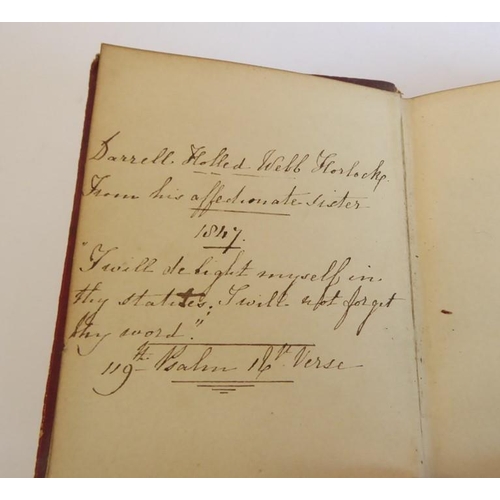 Darrell Holled Webb Horlock
From his affectionate sister
1847.
"I will delight myself in
thy statutes, I will not forget
thy word."
119th Psalm 16th Verse